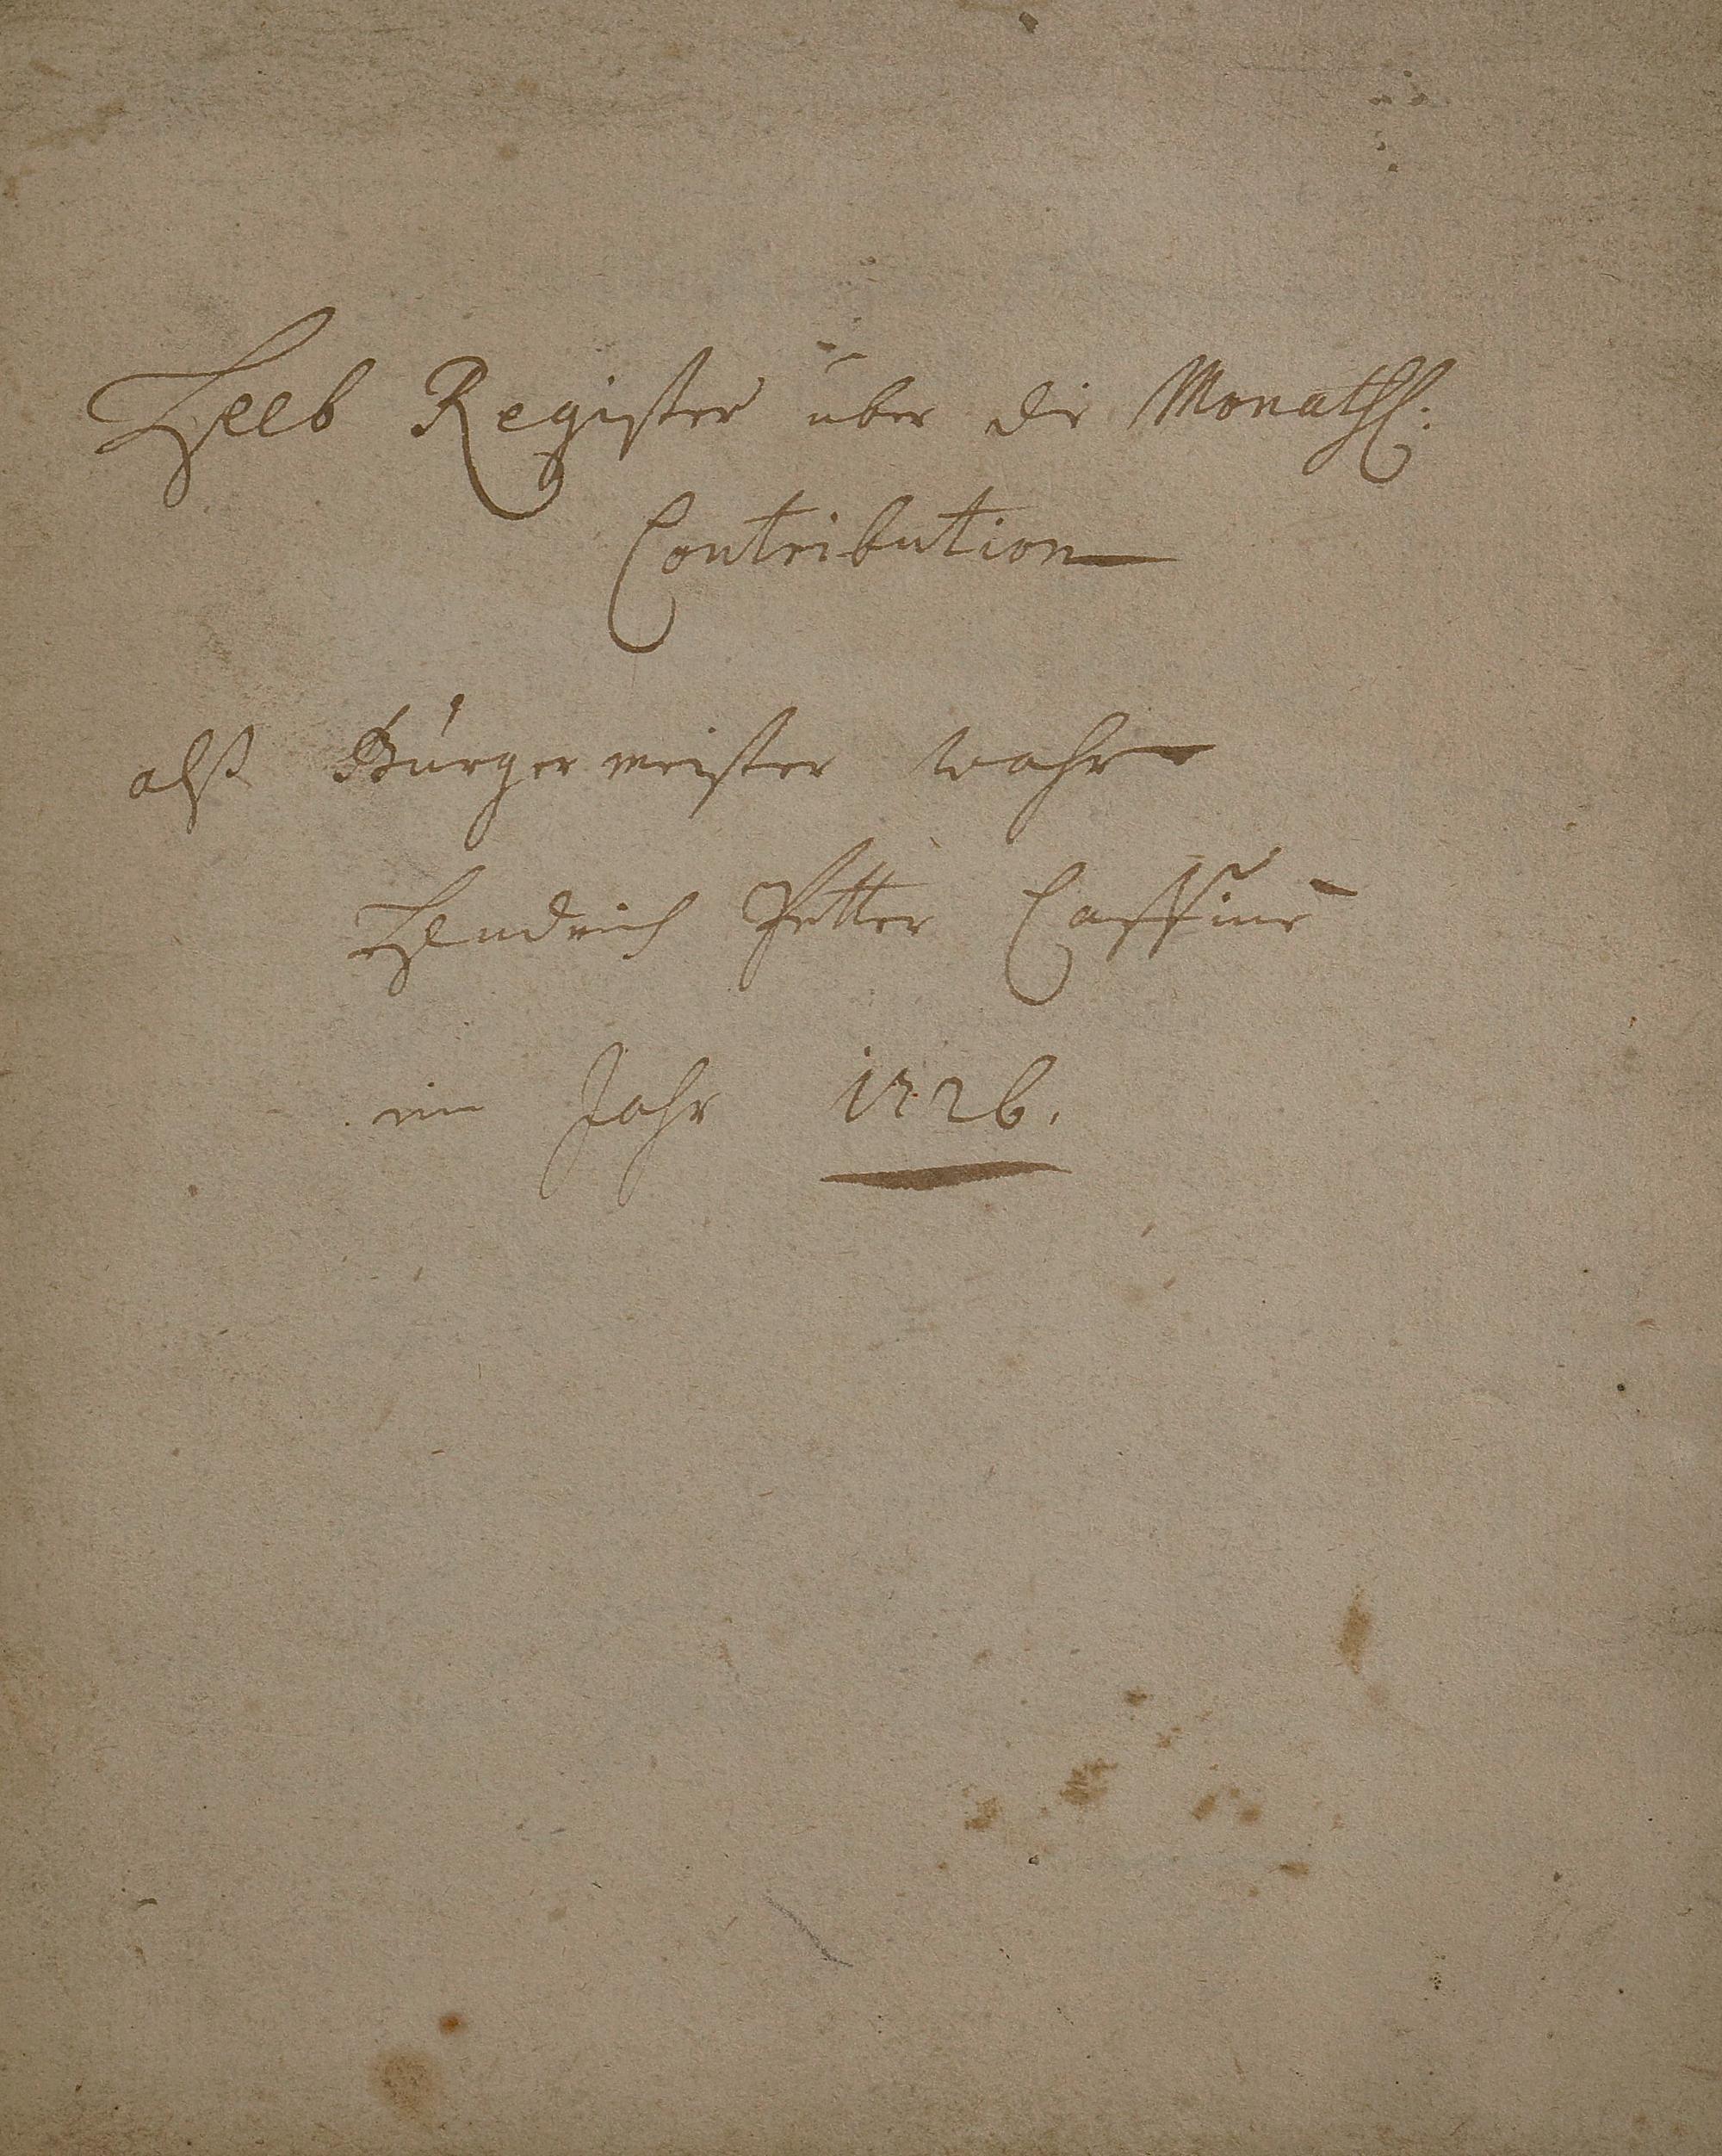 Heeb Register über die Monathl:
Contribution
alß Bürger meister wahr
Hendrich Petter Cassine
im Jahr 1726.